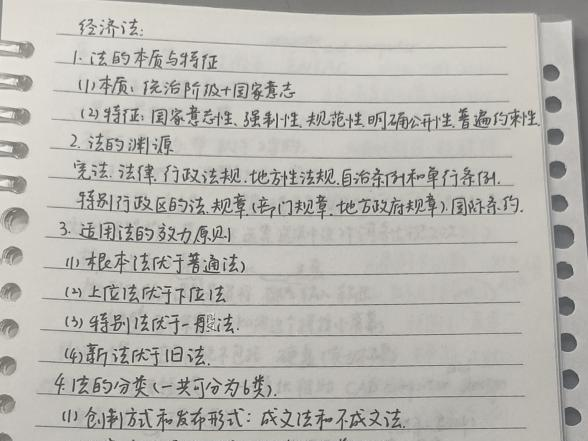 经济法:
1.法的本质与特征
(1)本质:统治阶级+国家意志
(2)特征:国家意志性、强制性、规范性、明确公开性、普遍约束性
2.法的渊源
宪法、法律、行政法规、地方性法规、自治条例和单行条例、
特别行政区的法、规章(部门规章、地方政府规章)、国际条约.
3.适用法的效力原则
(1)根本法优于普通法)
(2)上位法优于下位法
(3)特别法优于一般法.
(4)新法优于旧法.
4.法的分类(一共可分为6类).
(1)创制方式和发布形式:成文法和不成文法.